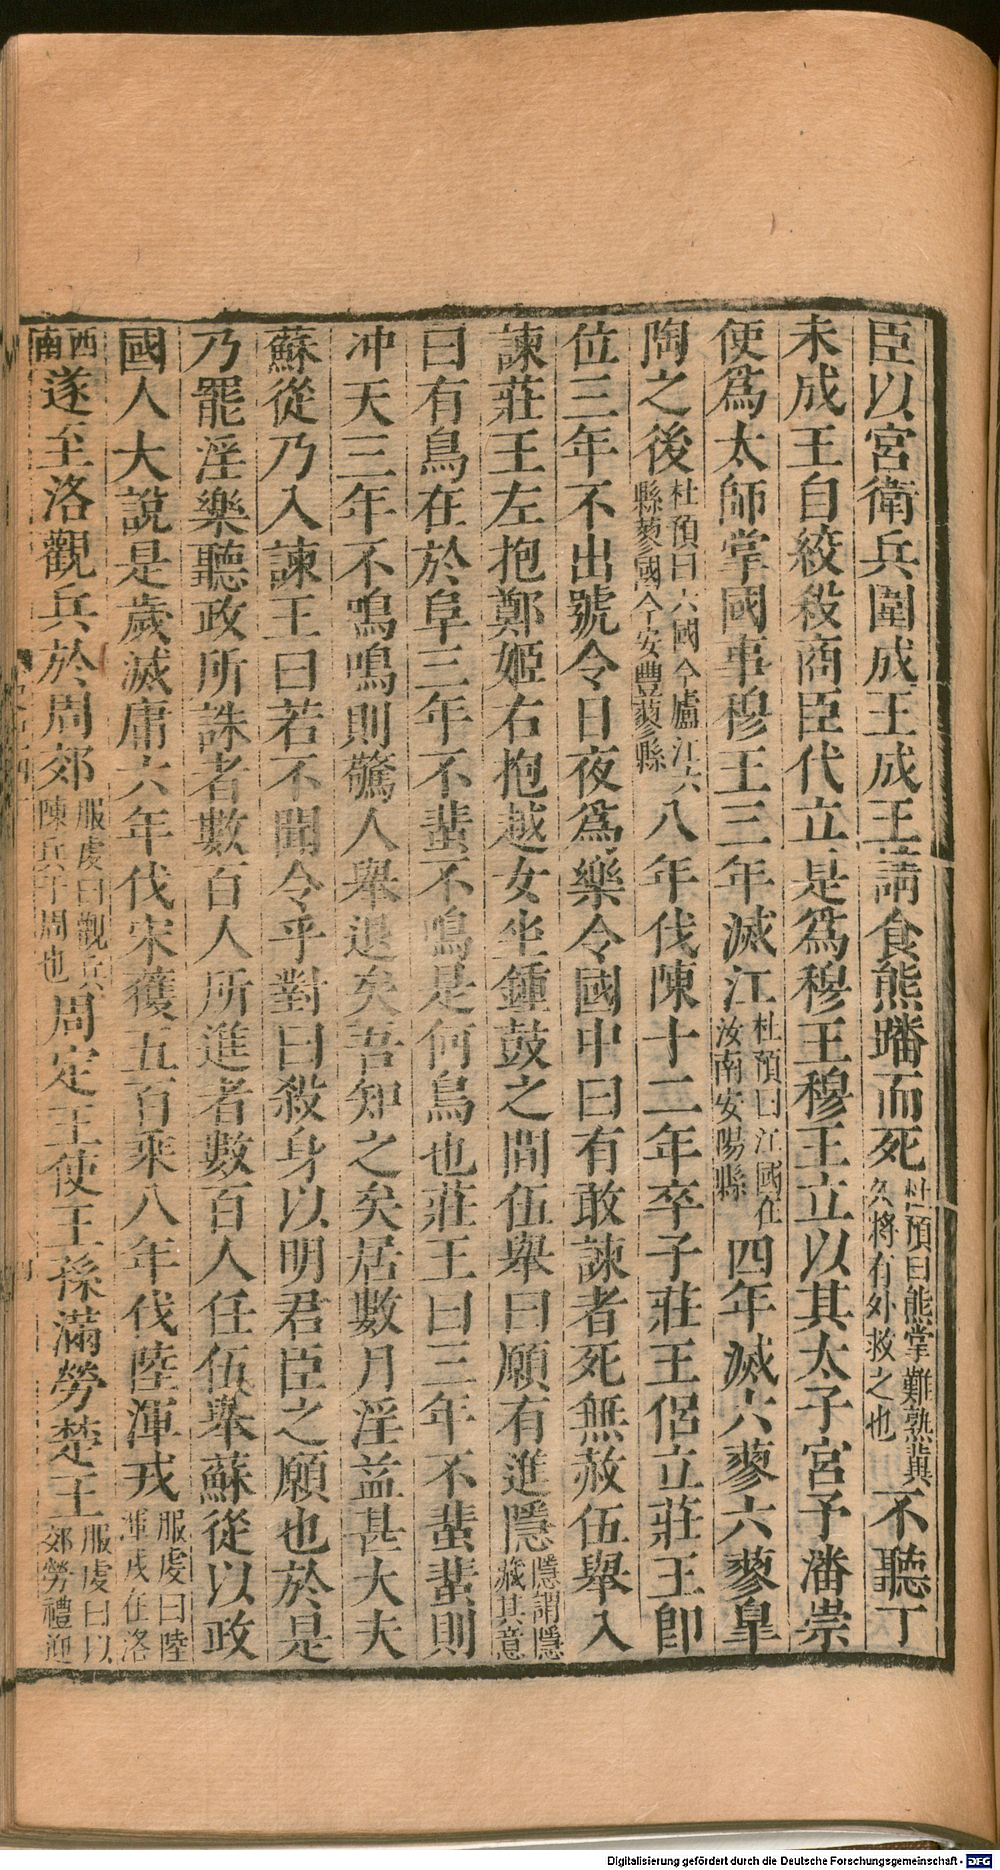 臣以宮衛兵圍成王成王請食熊蹯而死杜預曰熊掌難熟冀久將有外救之也不聽丁
未成王自絞殺商臣代立是爲穆王穆王立以其太子宮予潘崇
使爲太師掌國事穆王三年滅江杜預曰江國在汝南安陽縣四年滅六蓼六蓼皐
陶之後杜預曰六國今廬江六縣蓼國今安豐蓼縣八年伐陳十二年卒子莊王侶立莊王卽
位三年不出號令日夜爲樂令國中曰有敢諫者死無赦伍舉入
諫莊王左抱鄭姬右抱越女坐鍾鼓之間伍舉曰願有進隱隱謂隱藏其意
曰有鳥在於阜三年不蜚不鳴是何鳥也莊王曰三年不蜚蜚則
冲天三年不鳴鳴則驚人舉退矣吾知之矣居數月淫益甚大夫
蘇從乃入諫王曰若不聞令乎對曰殺身以明君臣之願也於是
乃罷淫樂聽政所誅者數百人所進者數百人任伍舉蘇從以政
國人大說是歲滅庸六年伐宋獲五百乘八年伐陸渾戎服虔曰陸渾戎在洛
西南遂至洛觀兵於周郊服虔曰觀兵陳兵於周也周定王使王孫滿勞楚王服虔曰以郊勞禮迎
Digitalisierung gefördert durch die Deutsche Forschungsgemeinschaft - DFG